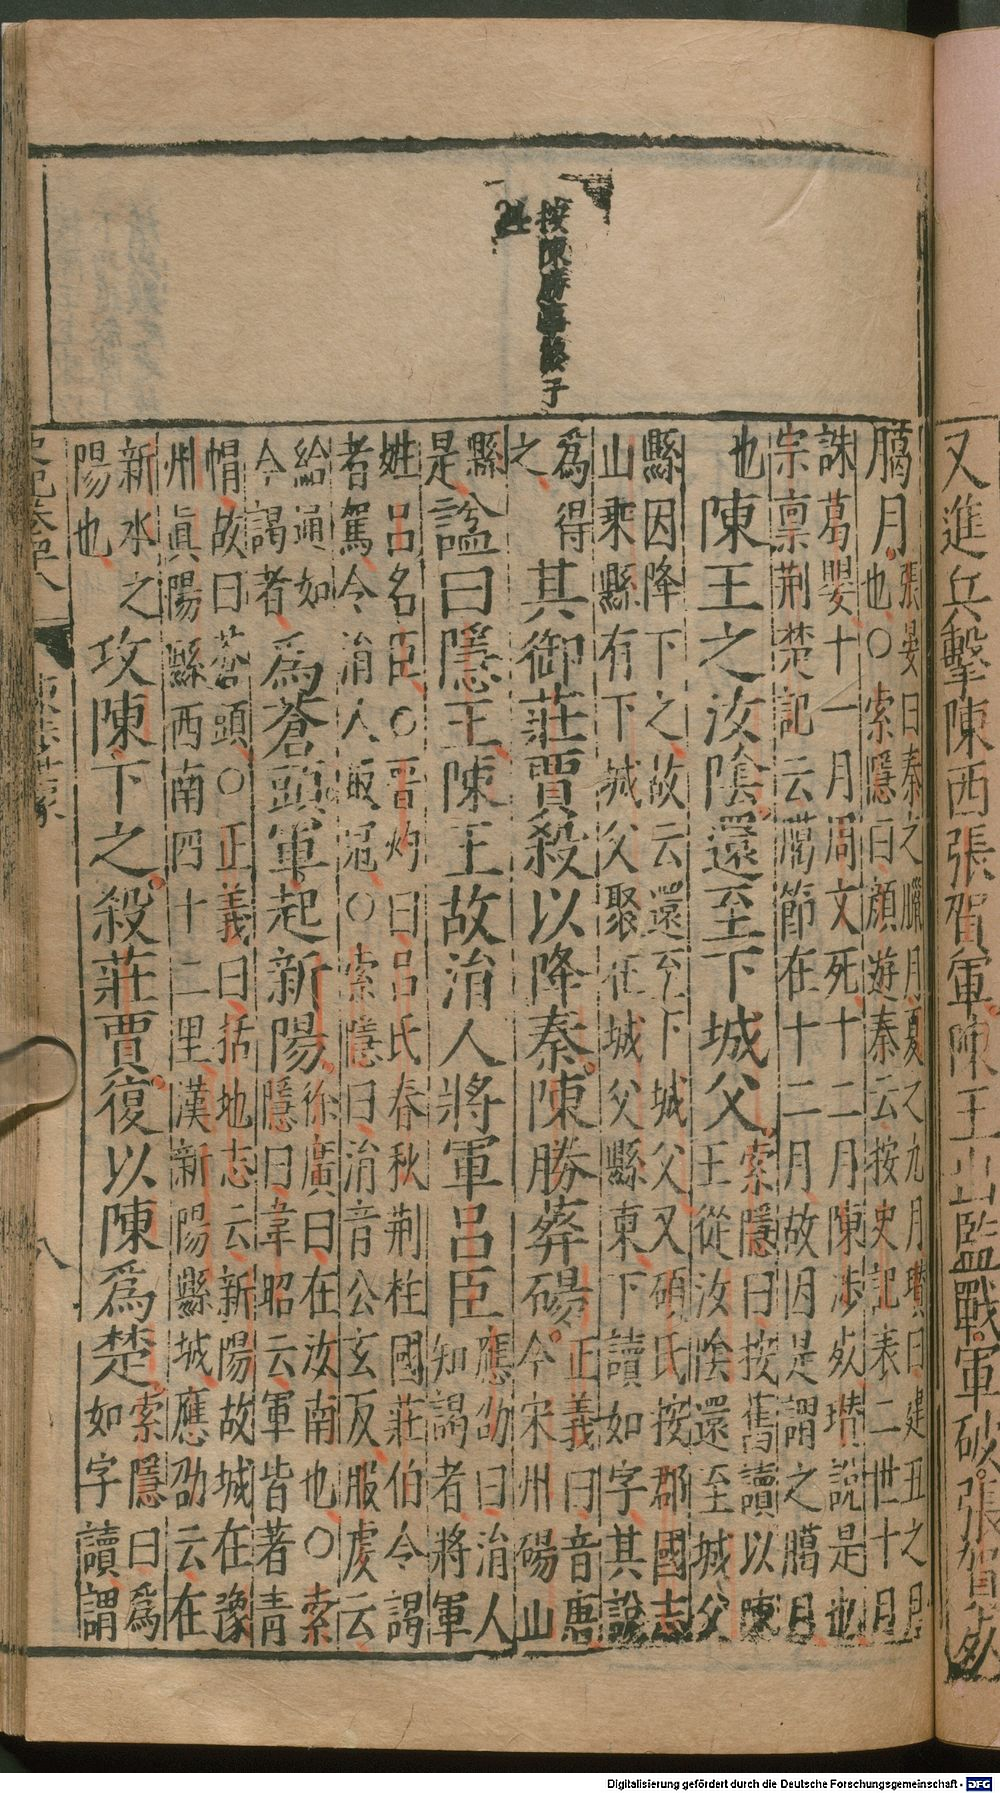 又進兵擊陳西張賀軍陳王出監戰軍破張賀死
按陳勝事終于
此
臈月張晏曰秦之臘月夏之九月瓚曰建丑之月
也○索隱曰顔遊秦云按史記表二世十月
誅葛嬰十一月周文死十二月陳涉死瓚說是也
宗懍荆楚記云臈節在十二月故因是謂之臈月
也陳王之汝陰還至下城父索隱曰按舊讀以陳
王從汝陰還至城父
縣因降下之故云還至下城父又碩氏按郡國志
山乘縣有下城父聚在城父縣東下讀如字其說
爲得
之其御莊賈殺以降秦陳勝葬碭正義曰音唐
今宋州碭山
縣
是諡曰隱王陳王故涓人將軍呂臣應劭曰涓人
知謁者將軍
姓呂名臣○晋灼曰呂氏春秋荆柱國莊伯令謁
者駕令涓人取冠○索隱曰涓音公玄反服虔云
給通如
今謁者爲蒼頭軍起新陽徐廣曰在汝南也○索
隱曰韋昭云軍皆著青
帽故曰蒼頭○正義曰括地志云新陽故城在豫
州眞陽縣西南四十二里漢新陽縣城應劭云在
新水之
陽也攻陳下之殺莊賈復以陳爲楚索隱曰爲
如字讀謂
八
Digitalisierung gefördert durch die Deutsche Forschungsgemeinschaft - DFG